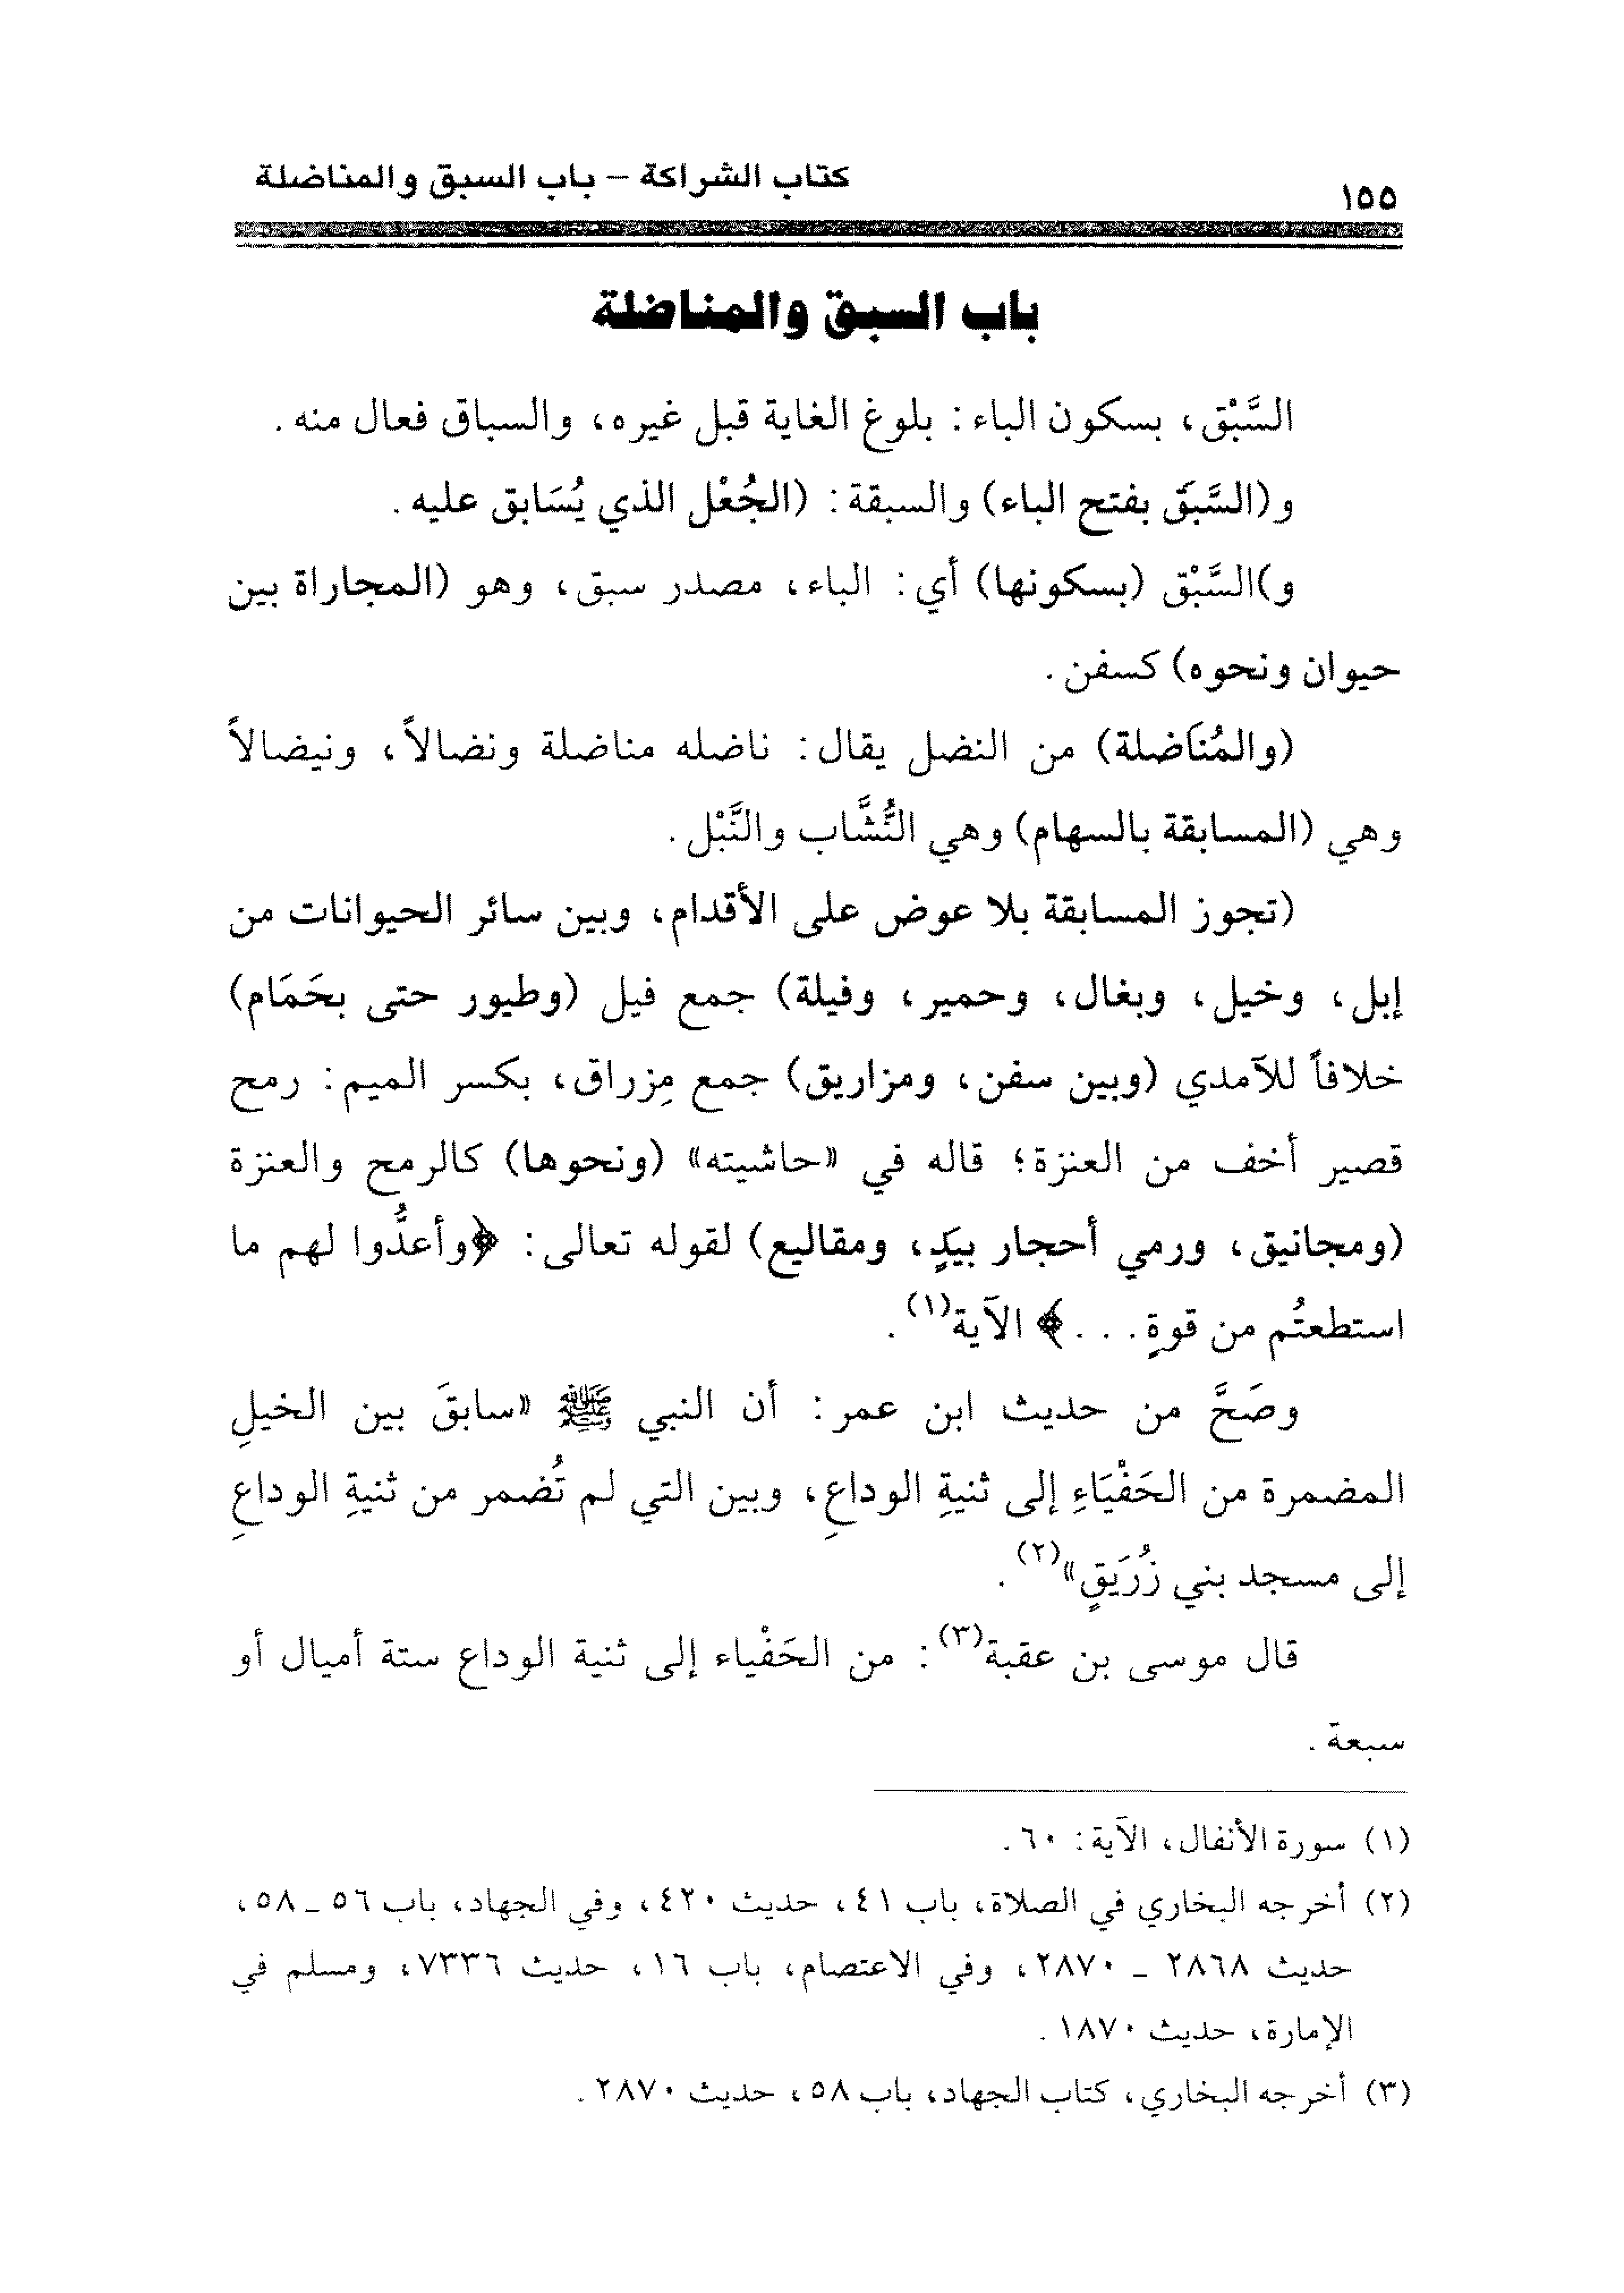 ١٥٥
كتاب الشراكة – باب السبق والمناضلة
باب السبق والمناضلة
السَّبْق، بسكون الباء: بلوغ الغاية قبل غيره، والسباق فعال منه.
و(السَّبَق بفتح الباء) والسبقة: (الجُعْل الذي يُسَابق عليه.
و)السَّبْق (بسكونها) أي: الباء، مصدر سبق، وهو (المجاراة بين
حيوان ونحوه) كسفن.
(والمُنَاضلة) من النضل يقال: ناضله مناضلة ونضالاً، ونيضالاً
وهي (المسابقة بالسهام) وهي النُّشَّاب والنَّبْل.
(تجوز المسابقة بلا عوض على الأقدام، وبين سائر الحيوانات من
إبل، وخيل، وبغال، وحمير، وفيلة) جمع فيل (وطيور حتى بحَمَام)
خلافاً للآمدي (وبين سفن، ومزاريق) جمع مِزراق، بكسر الميم: رمح
قصير أخف من العنزة؛ قاله في «حاشيته» (ونحوها) كالرمح والعنزة
(ومجانيق، ورمي أحجار بيَدٍ، ومقاليع) لقوله تعالى: ﴿وأعدُّوا لهم ما
استطعتُم من قوةٍ...﴾ الآية(١).
وصَحَّ من حديث ابن عمر: أن النبي ﷺ «سابقَ بين الخيلِ
المضمرة من الحَفْيَاءِ إلى ثنيةِ الوداعِ، وبين التي لم تُضمر من ثنيةِ الوداعِ
إلى مسجد بني زُرَيَقٍ»(٢).
قال موسى بن عقبة(٣): من الحَفْياء إلى ثنية الوداع ستة أميال أو
سبعة.
(١) سورة الأنفال، الآية: ٦٠.
(٢) أخرجه البخاري في الصلاة، باب ٤١، حديث ٤٢٠، وفي الجهاد، باب ٥٦ ـ ٥٨،
حديث ٢٨٦٨ ـ ٢٨٧٠، وفي الاعتصام، باب ١٦، حديث ٧٣٣٦، ومسلم في
الإمارة، حديث ١٨٧٠.
(٣) أخرجه البخاري، كتاب الجهاد، باب ٥٨، حديث ٢٨٧٠.